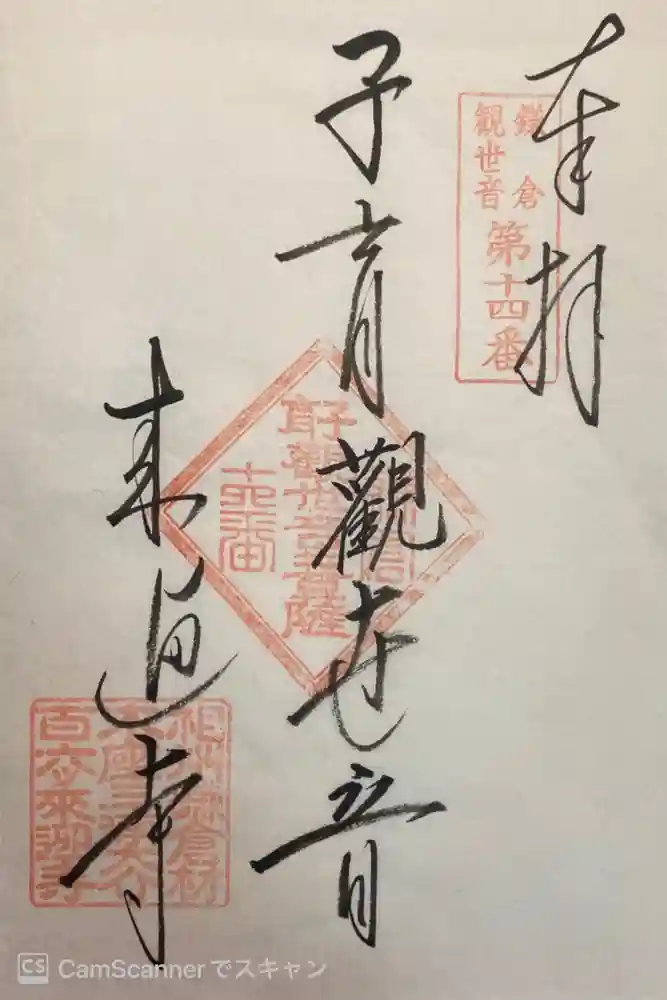 奉拝
鎌倉
観世音
第十四番
子育觀世音
子育觀世音菩薩
十四番
来迎寺
相州鎌倉材
木座三浦大介
百六來迎寺
CS CamScannerでスキャン